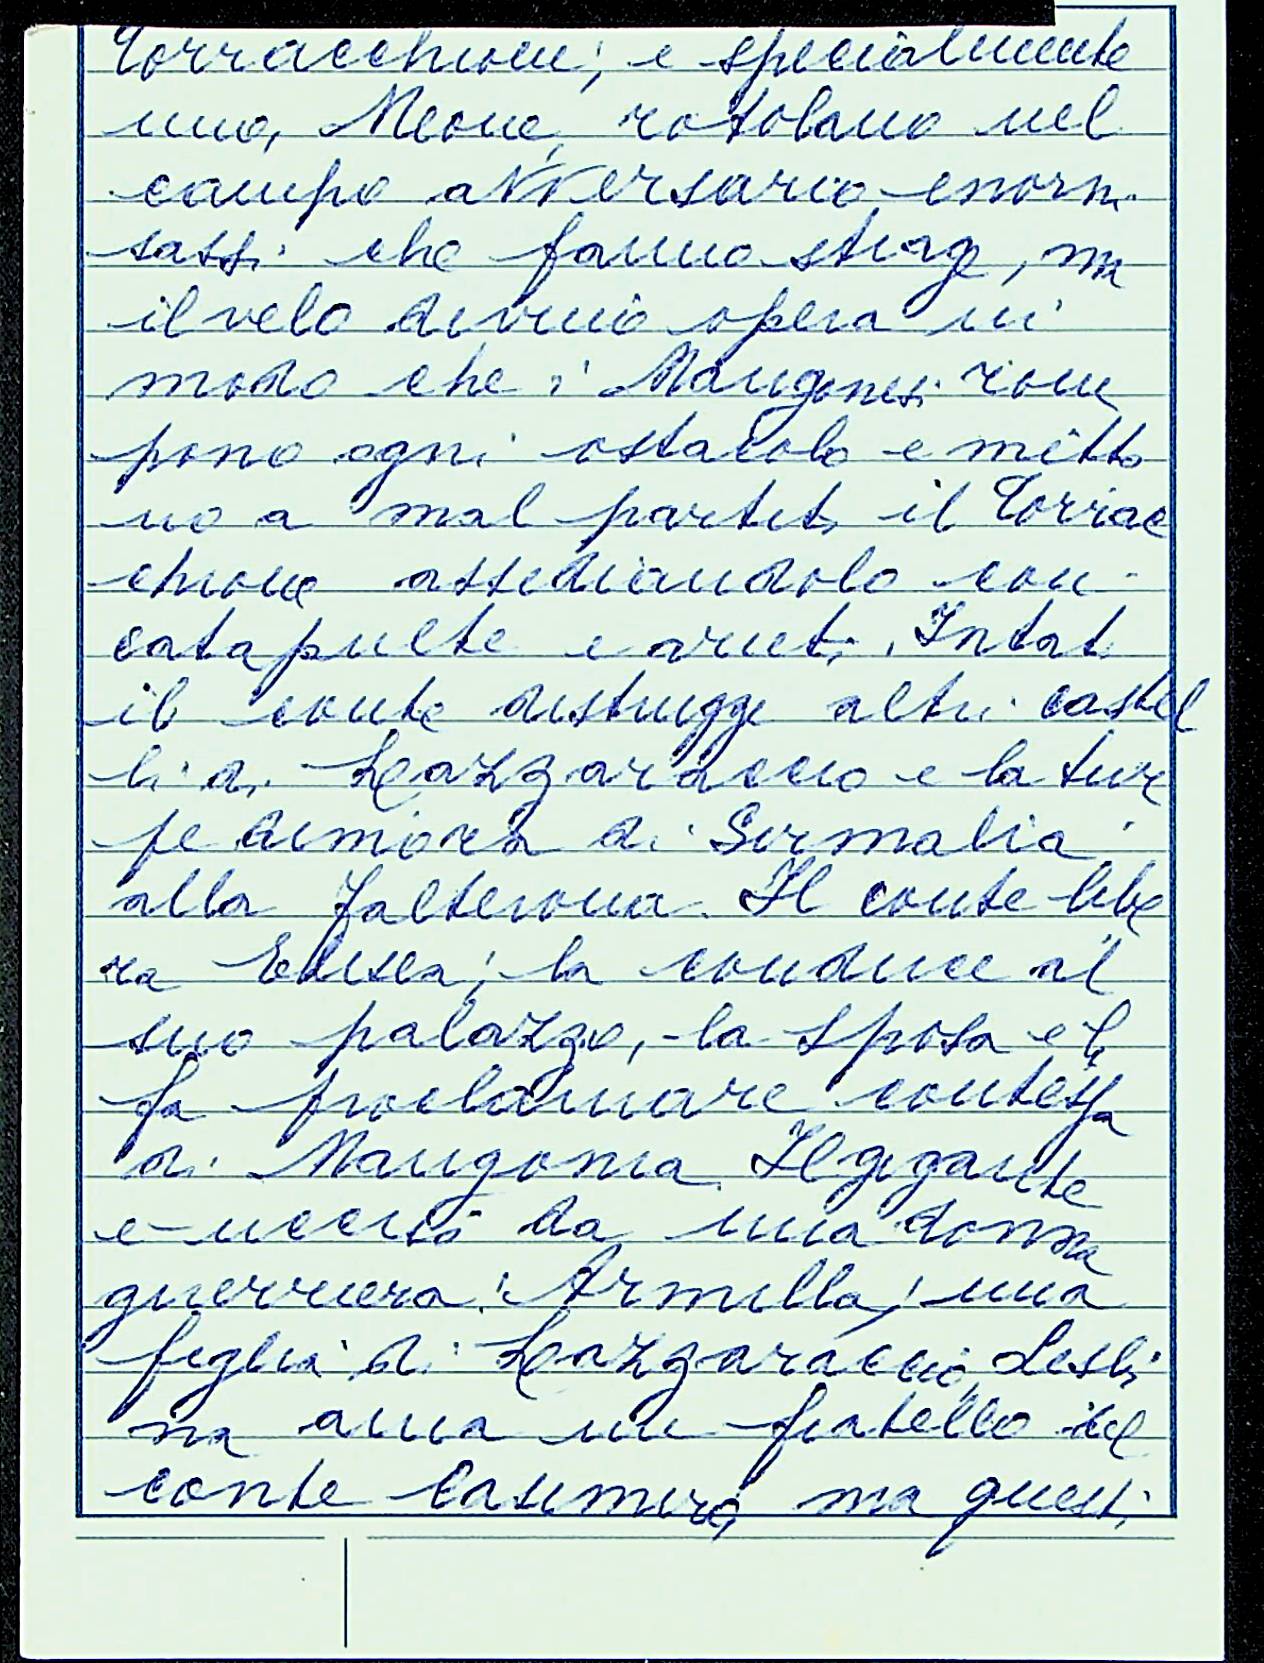 Torracchioni, e specialmente
uno, Meone, rotolano nel
campo avversario enormi
sassi che fanno strage, ma
il velo divino opera in
modo che i Mangonesi rom
pono ogni ostacolo e metto
no a mal partito il Torrac
chione assediandolo con
catapulte e arieti. Intato
il conte distrugge altri castel
li di Lazzaraccio e la tur
pe dimora di Sirmalia
alla Falterona. Il conte libe
ra Elisea, la conduce al
suo palazzo, la sposa e la
fa proclamare contessa
di Mangona. Il gigante
è ucciso da una donna
guerriera: Armilla; una
figlia di Lazzaraccio, Lesbi
na ama un fratello del
conte Casimiro, ma questi